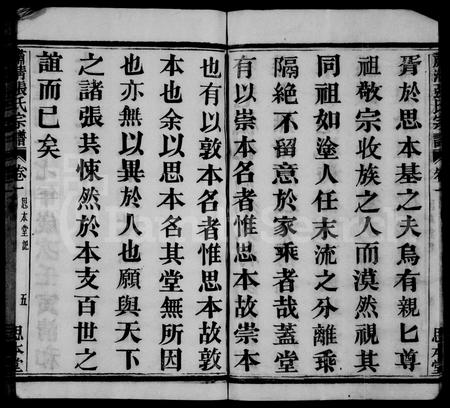 胥於思本基之夫烏有親匕尊
祖敬宗收族之人而漠然視其
同祖如塗人任末流之分離乘
隔絶不留意於家乘者哉蓋堂
有以崇本名者惟思本故崇本
也有以敦本名者惟思本故敦
本也余以思本名其堂無所因
也亦無以異於人也願與天下
之諸張共悚然於本支百世之
誼而已矣
蕭清張氏宗譜
卷一
思本堂記
五
思本堂